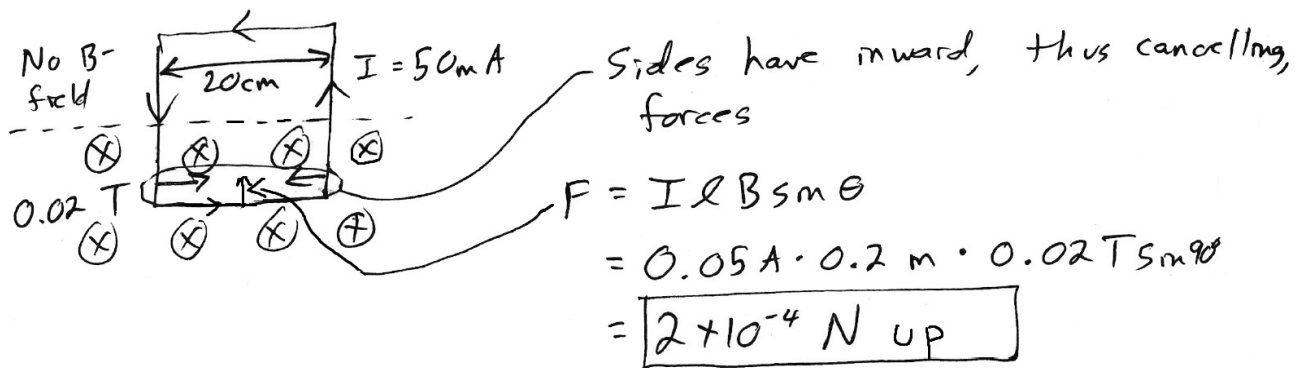 No B-
field
20cm
I = 50mA
Sides have inward, thus cancelling,
forces
0.02 T
F = I ℓ B sin θ
= 0.05 A · 0.2 m · 0.02 T sin 90°
= 2 × 10⁻⁴ N up